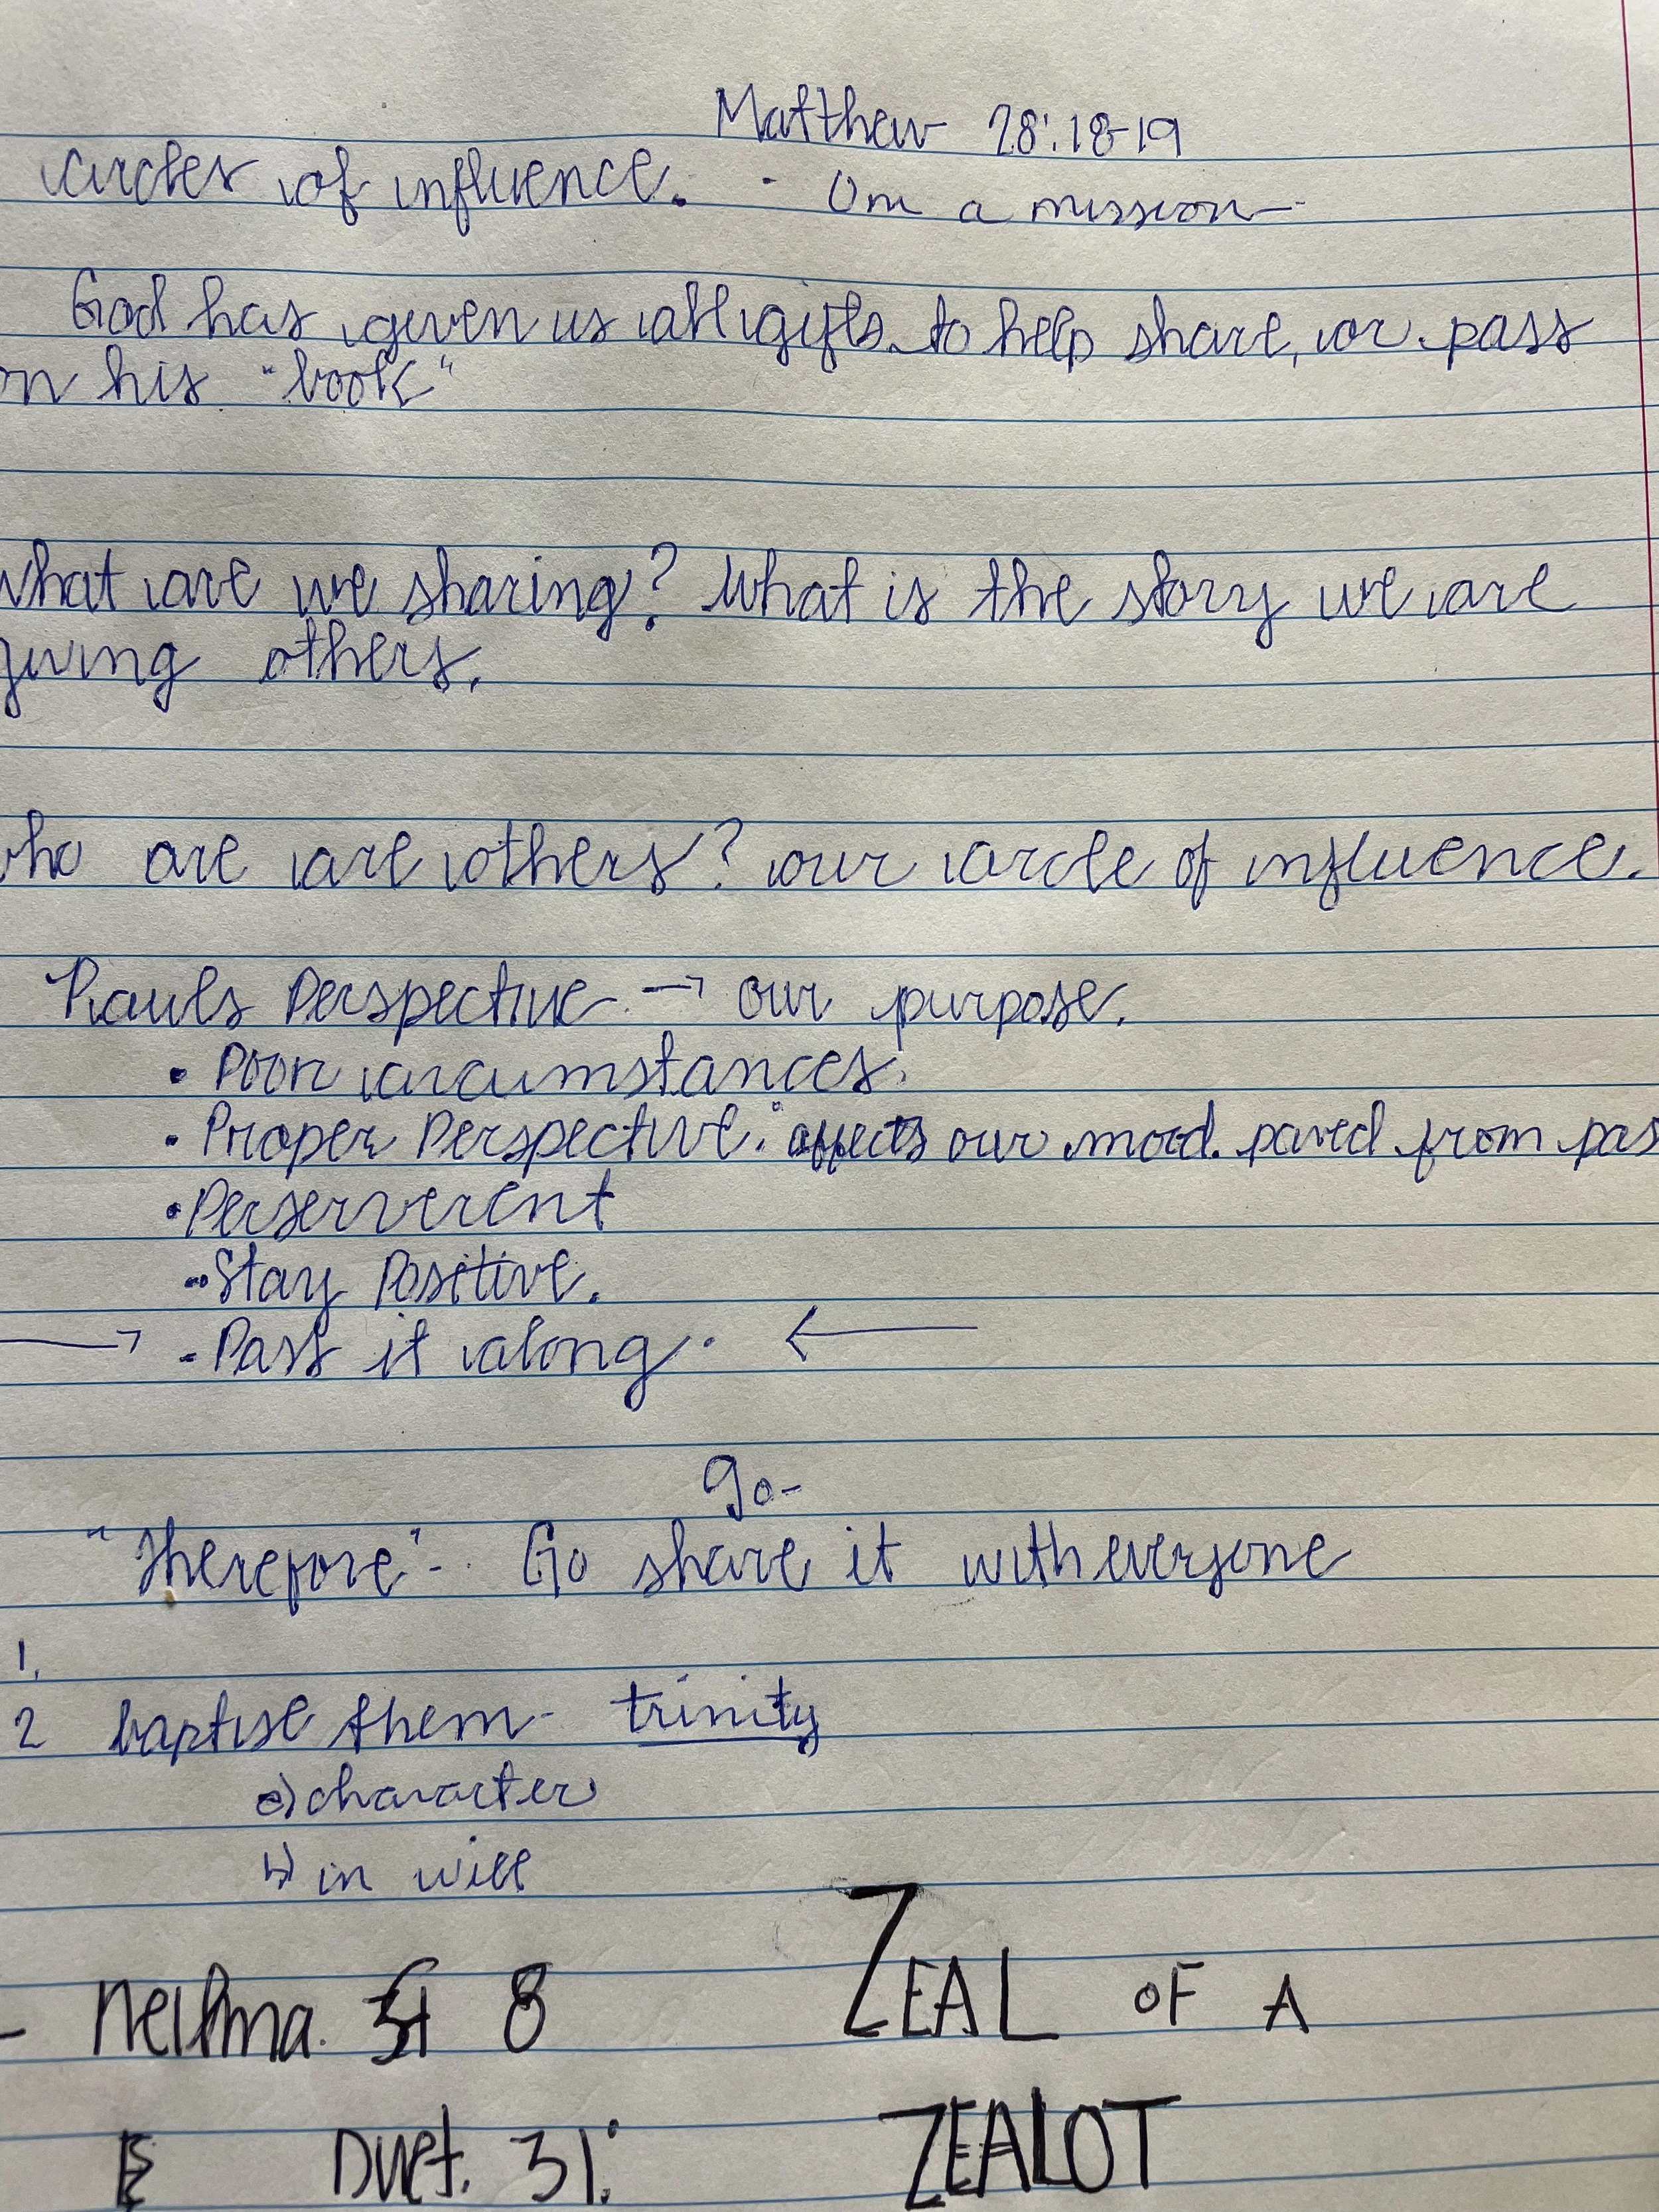 Matthew 28:18-19
circles of influence. - On a mission
God has given us all gifts to help share, or pass
on his "book"
what are we sharing? What is the story we are
giving others.
who are are others? our circle of influence.
Pauls Perspective → our purpose.
• Poor circumstances.
• Proper Perspective: affects our mood. paved from pas
• Perserverent
- Stay Positive.
→ - Pass it along. ←
go-
"Therefore" - Go share it with everyone
1.
2 baptise them - trinity
a) character
b) in will
- 8 ZEAL OF A
Duet. 31: ZEALOT